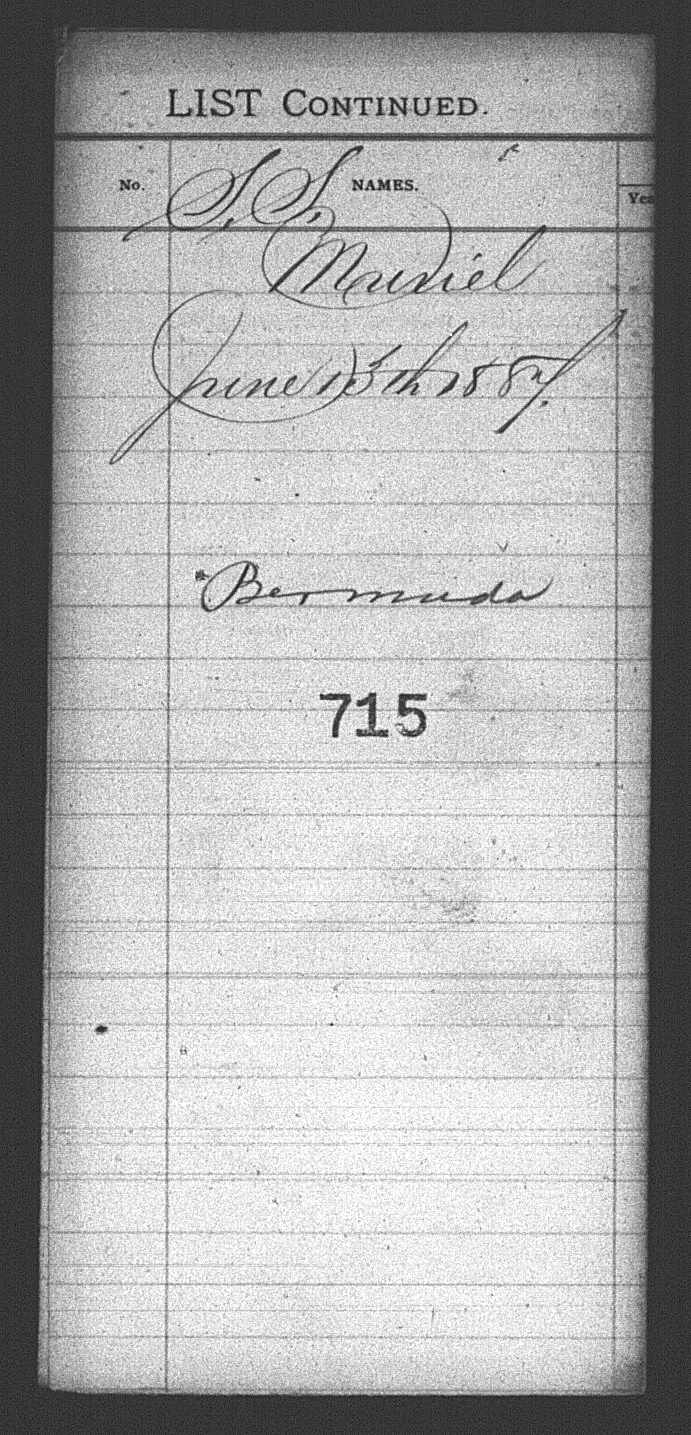 LIST CONTINUED.
No. NAMES.
S. S.
Muriel
June 13th 1887.
Bermuda
715